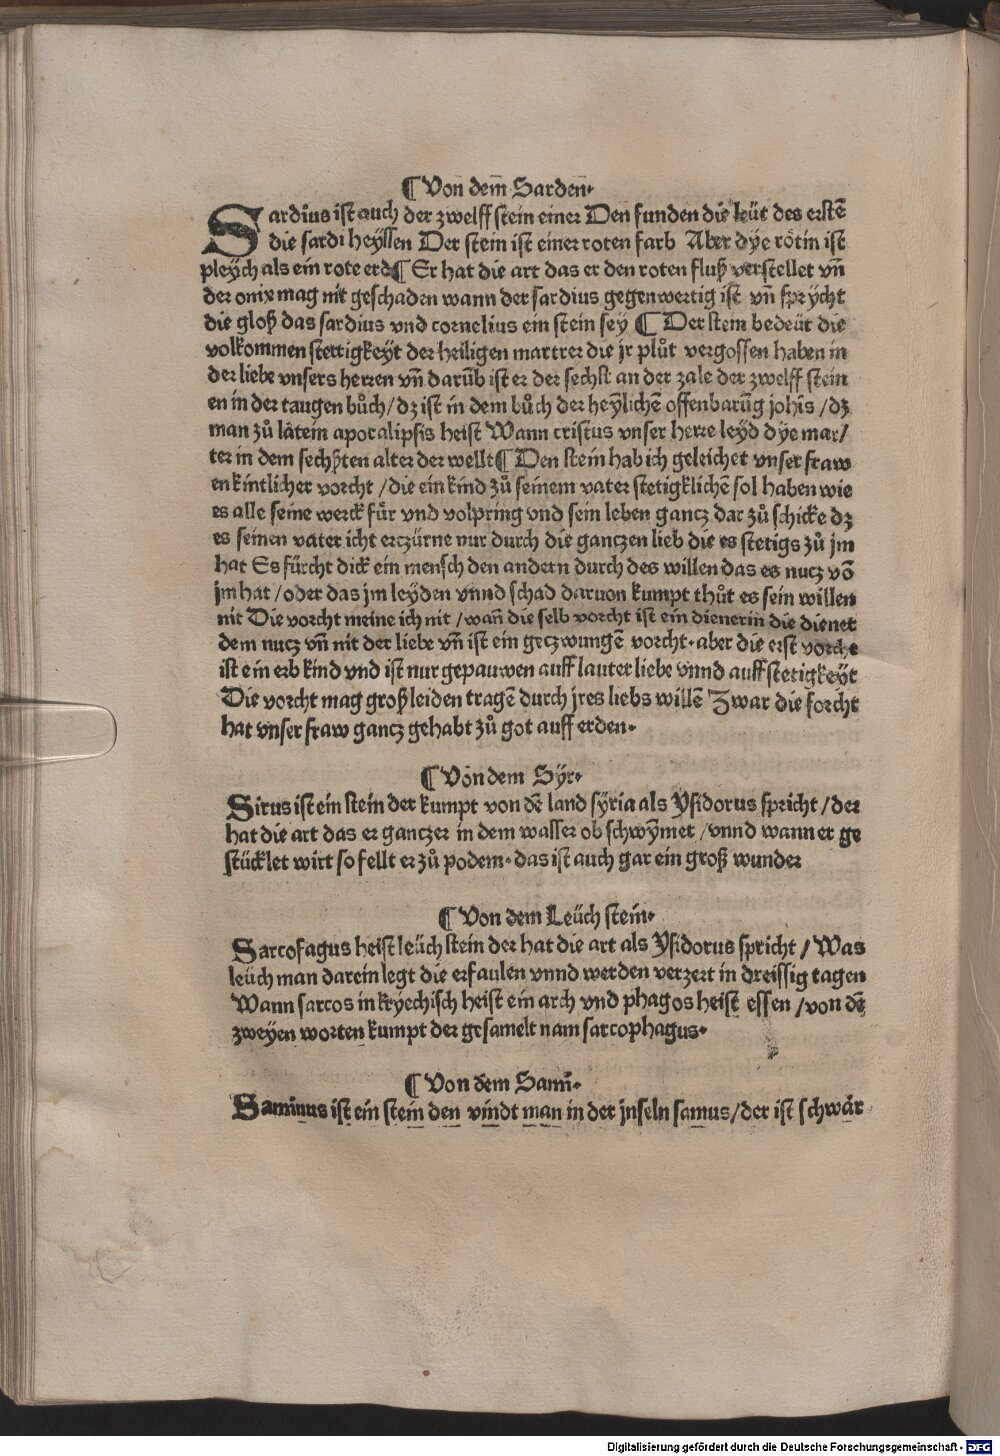 ¶ Von dem̄ Sarden·
Sardius ist auch der zwelff stein einer Den funden die leüt des erstē
die sardi heyssen Der stein ist einer roten farb Aber dye rötin ist
pleych als ein rote erd ¶ Er hat die art das er den roten fluß verstellet vn̄
der onix mag nit geschaden wann der sardius gegenwertig ist vn̄ sprycht
die gloß das sardius vnd cornelius ein stein sey ¶ Der stein bedeüt die
volkommen stettigkeyt der heiligen martrer die jr plůt vergossen haben in
der liebe vnsers herren vn̄ darūb ist er der sechst an der zale der zwelff stein
en in der taugen bůch/dz ist in dem bůch der heȳlichē offenbarūg joh̄is/dz
man zů latein apocalipsis heist Wann cristus vnser herre leyd dye mar/
ter in dem sechßten alter der wellt ¶ Den stein hab ich geleichet vnser fraw
en kintlicher vorcht/die ein kind zů seinem vater stetigklichē sol haben wie
es alle seine werck für vnd volpring vnd sein leben gancz dar zů schicke dz
es seinen vater icht erczürne nur durch die ganczen lieb die es stetigs zů jm
hat Es fürcht dick ein mensch den andern durch des willen das es nucz vō
jm hat/oder das jm leyden vnnd schad daruon kumpt thůt es sein willen
nit Die vorcht meine ich nit/wan̄ die selb vorcht ist ein dienerin die dienet
dem nucz vn̄ nit der liebe vn̄ ist ein geczwungē vorcht·aber die erst vorcht
ist ein erb kind vnd ist nur gepauwen auff lauter liebe vnnd auff stetigkeyt
Die vorcht mag groß leiden tragē durch jres liebs willē Zwar die forcht
hat vnser fraw gancz gehabt zů got auff erden·
¶ Von dem Syr·
Sirus ist ein stein der kumpt von dē land syria als Ysidorus spricht/der
hat die art das er ganczer in dem wasser ob schwȳmet/vnnd wann er ge
stücklet wirt so fellt er zů podem·das ist auch gar ein groß wunder
¶ Von dem Leüch stein·
Sarcofagus heist leüch stein der hat die art als Ysidorus spricht/Was
leüch man darein legt die erfaulen vnnd werden verzert in dreissig tagen
Wann sarcos in kryechisch heist ein arch vnd phagos heist essen/von dē
zweyen worten kumpt der gesamelt nam sarcophagus·
¶ Von dem Sami·
Saminus ist ein stein den vindt man in der jnseln samus/der ist schwär
Digitalisierung gefördert durch die Deutsche Forschungsgemeinschaft - DFG